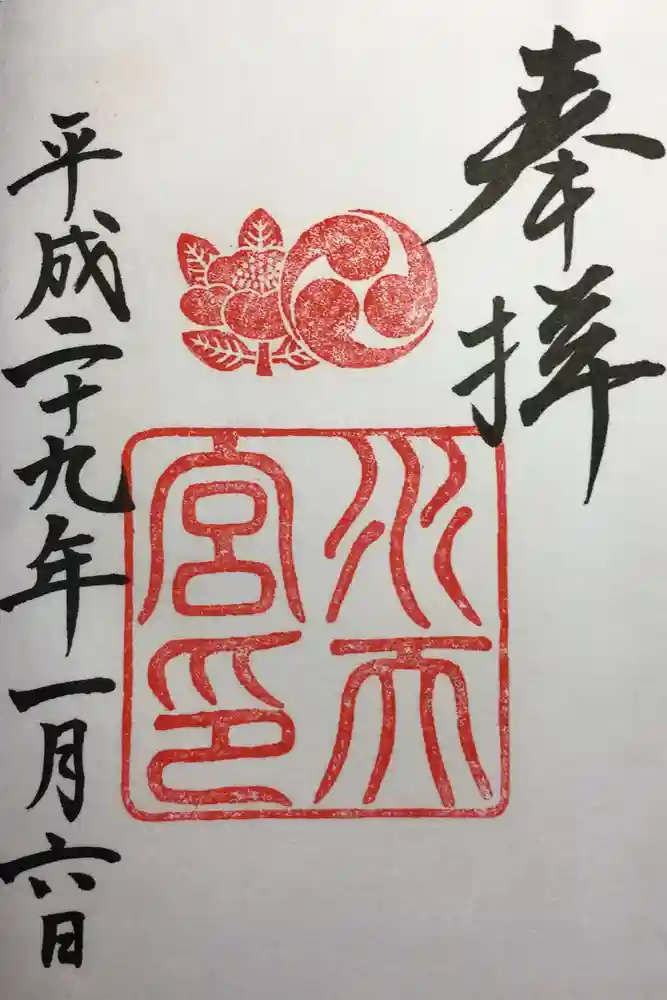 奉拝
水天
宮印
平成二十九年一月六日